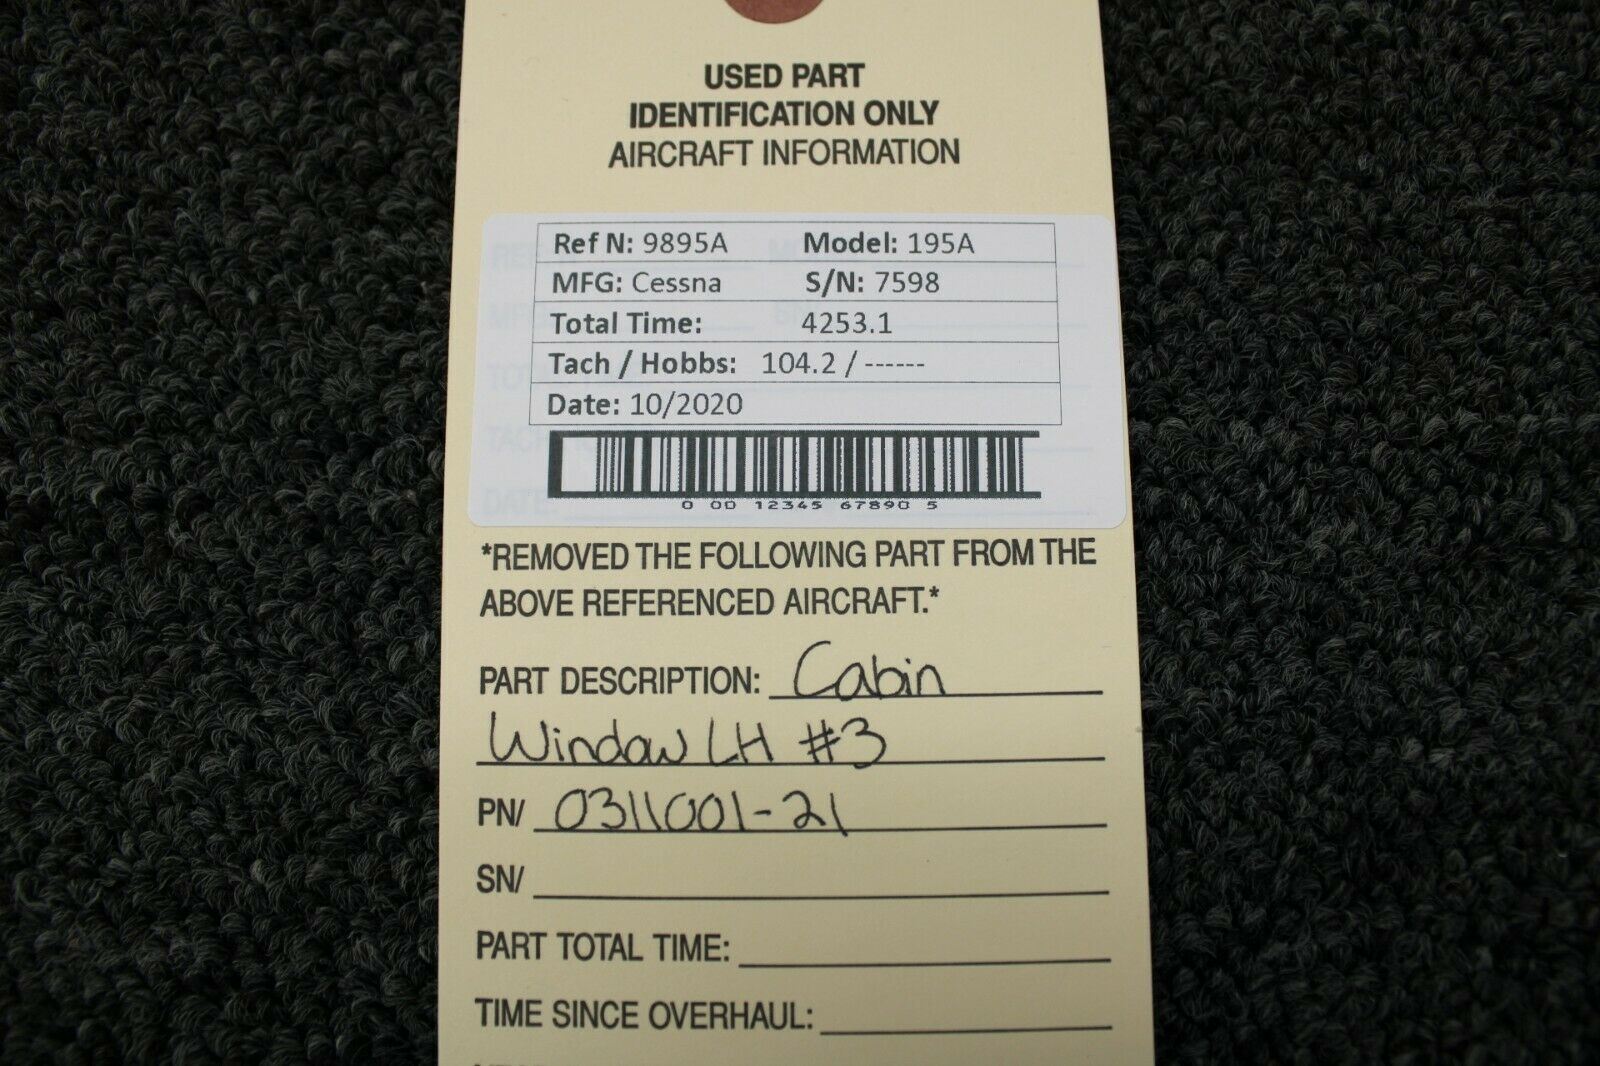 USED PART
IDENTIFICATION ONLY
AIRCRAFT INFORMATION
Ref N: 9895A Model: 195A
MFG: Cessna S/N: 7598
Total Time: 4253.1
Tach / Hobbs: 104.2 / ------
Date: 10/2020
0 00 12345 67890 5
DATE:
*REMOVED THE FOLLOWING PART FROM THE
ABOVE REFERENCED AIRCRAFT.*
PART DESCRIPTION: Cabin
Window LH #3
PN/ 0311001-21
SN/
PART TOTAL TIME:
TIME SINCE OVERHAUL: